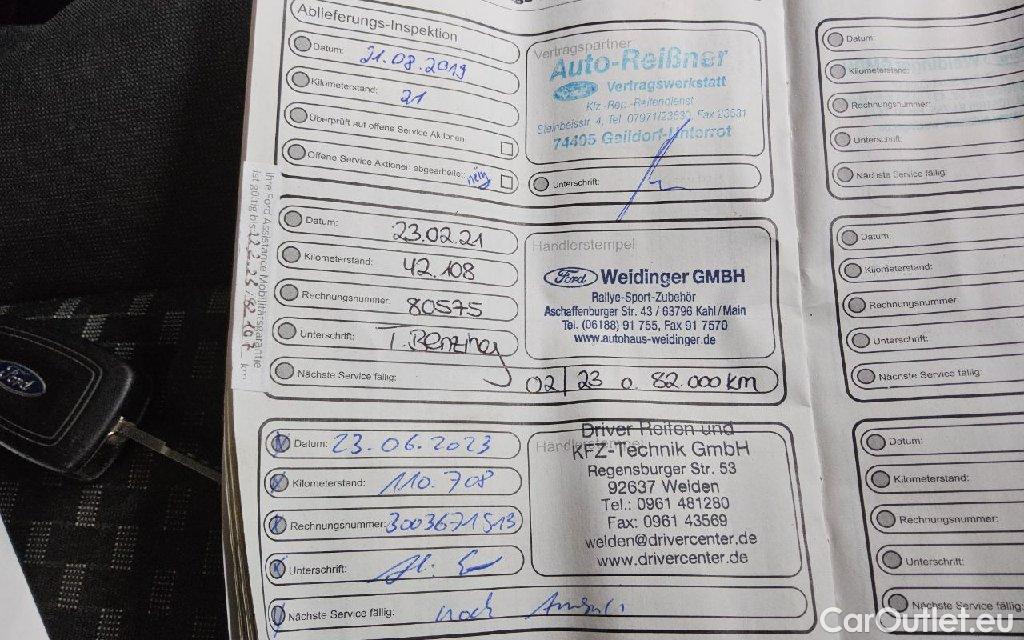 Ablieferungs-Inspektion
Datum: 21.08.2019
Kilometerstand: 21
Überprüft auf offene Service Aktionen
Offene Service Aktionen abgearbeitet: nein
Vertragspartner
Auto-Reißner
Ford Vertragswerkstatt
Kfz.-Rep.-Reifendienst
Steinbeisstr. 4, Tel. 07971/23530, Fax 23531
74405 Gaildorf-Unterrot
Unterschrift:
Ihre Ford Assistance Mobilitätsgarantie
ist gültig bis
km
Datum: 23.02.21
Kilometerstand: 42.108
Rechnungsnummer: 80575
Unterschrift:
Nächste Service fällig: 02/23 o. 82.000 km
Händlerstempel
Ford Weidinger GMBH
Rallye-Sport-Zubehör
Aschaffenburger Str. 43 / 63796 Kahl/Main
Tel. (06188) 91 755, Fax 91 7570
www.autohaus-weidinger.de
Datum: 23.06.2023
Kilometerstand: 110.708
Rechnungsnummer: 3003671513
Unterschrift:
Nächste Service fällig: noch
Händlerstempel
Driver Reifen und
KFZ-Technik GmbH
Regensburger Str. 53
92637 Weiden
Tel.: 0961 481280
Fax: 0961 43569
weiden@drivercenter.de
www.drivercenter.de
Datum:
Kilometerstand:
Rechnungsnummer:
Unterschrift:
Nächste Service fällig:
Datum:
Kilometerstand:
Rechnungsnummer
Unterschrift:
Nächste Service fällig:
Datum:
Kilometerstand:
Rechnungsnummer:
Unterschrift:
Nächste Service fällig:
Ford
CarOutlet.eu